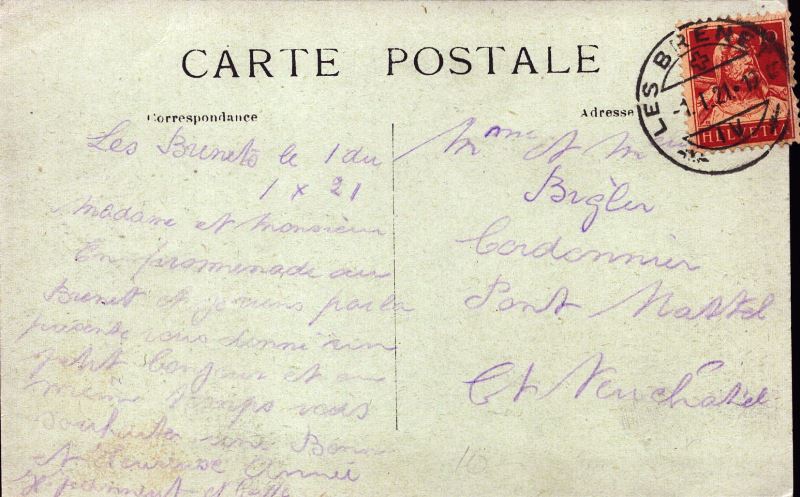 CARTE POSTALE
Correspondance
Adresse
LES BRENETS
-1.1.21.-12
HELVETIA
Les Brenets le 1 du
1 x 21
Madame et Monsieur
En promenade au
Brenet et je viens par la
présente vous donné un
petit bonjour et au
même temps vous
souhaiter une Bonne
et Heureuse Année
Mme et
Bigler
Cordonnier
Pont Martel
Ct Neuchâtel
10